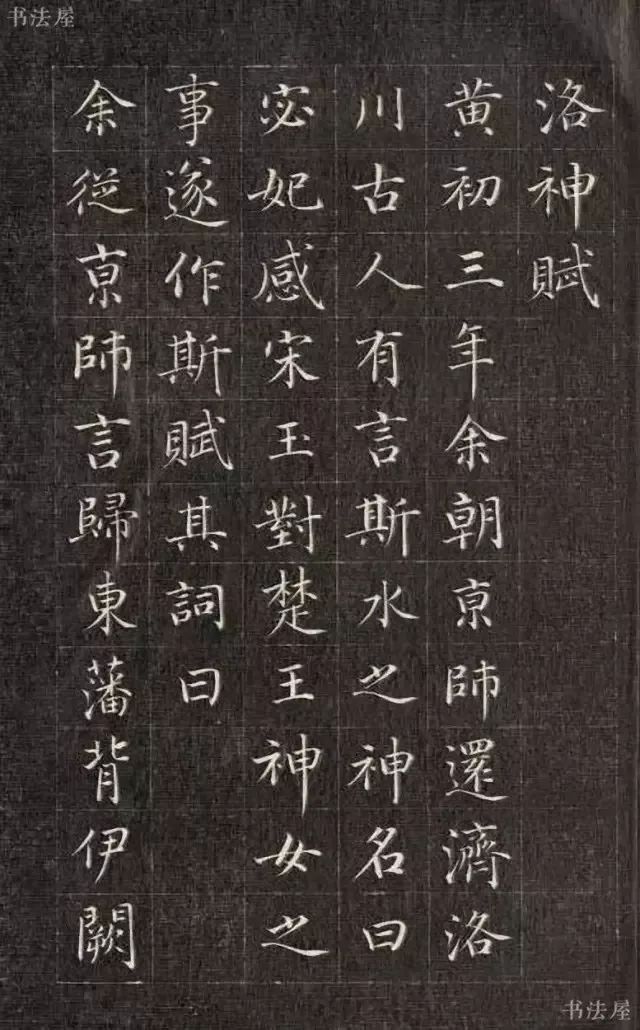 书法屋
洛神賦
黄初三年余朝京師還濟洛
川古人有言斯水之神名曰
宓妃感宋玉對楚王神女之
事遂作斯賦其詞曰
余從京師言歸東藩背伊闕
书法屋